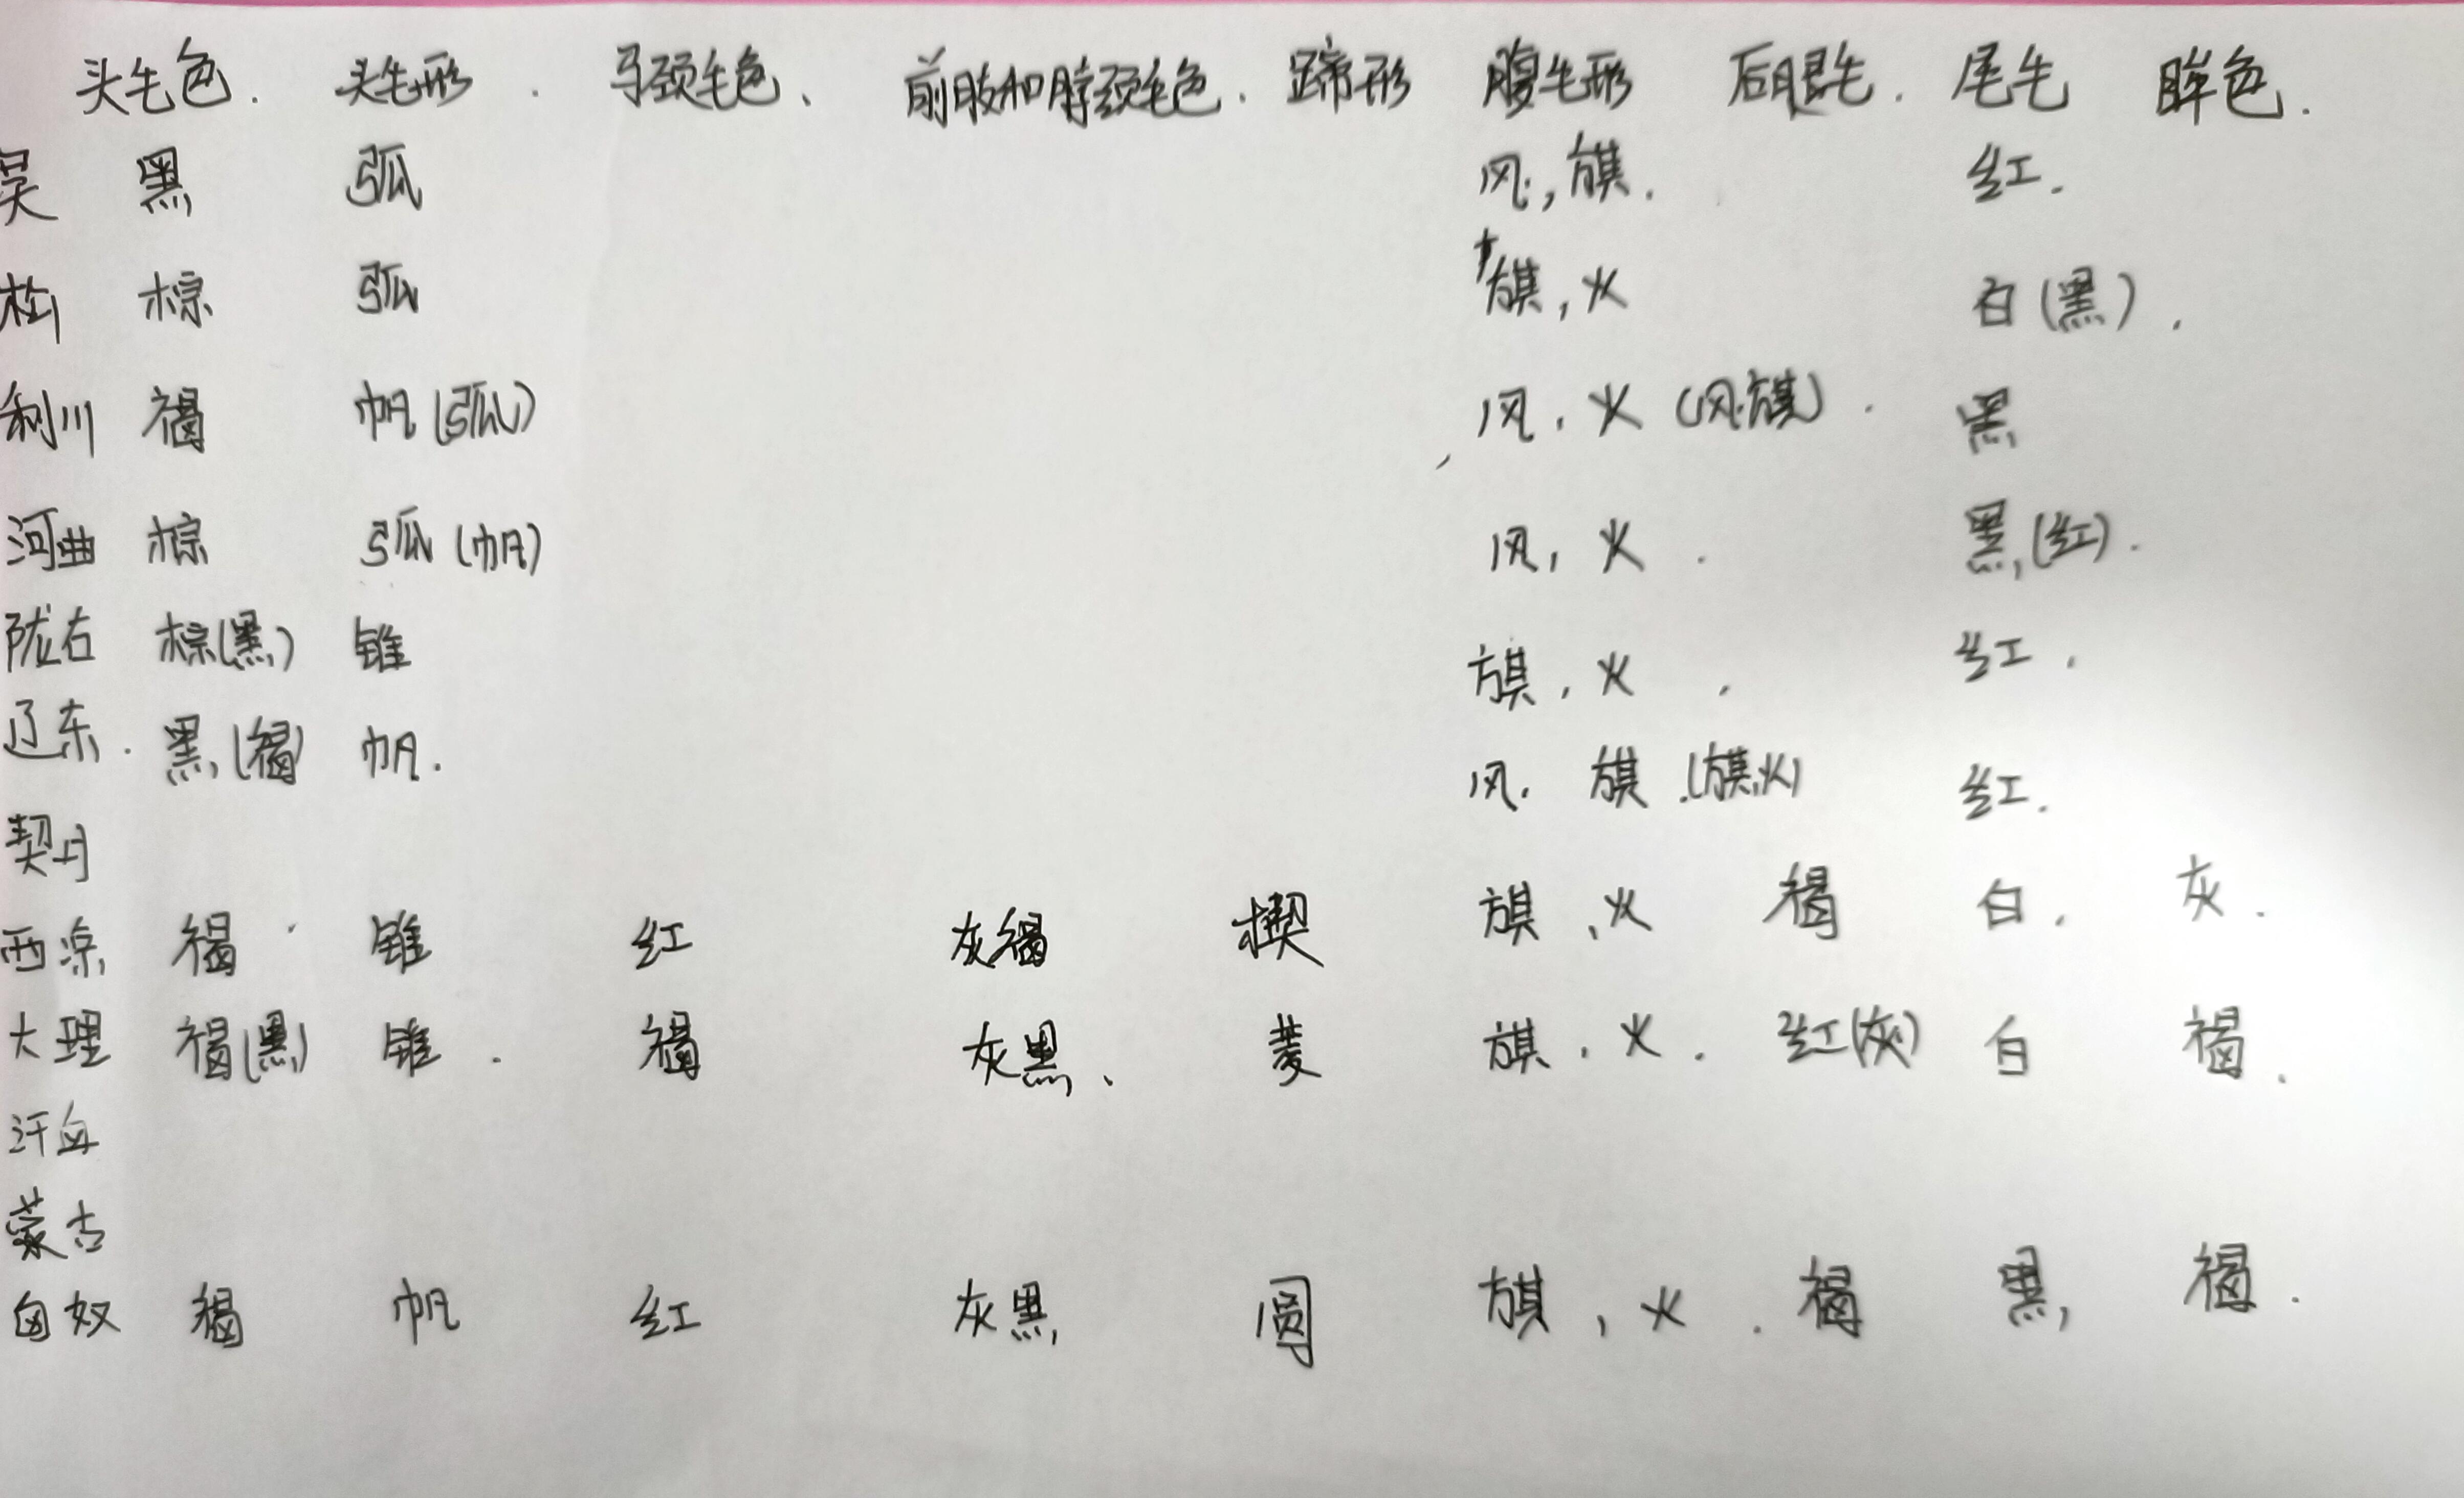 头毛色. 头毛形. 马颈毛色、 前肢和脖颈毛色. 蹄形 腹毛形 后腿毛. 尾毛 眸色.
吴 黑 弧 风,旗. 红.
松 棕 弧 旗,火 白(黑).
利川 褐 帆(弧) 风,火(风旗). 黑
河曲 棕 弧(帆) 风,火. 黑(红).
陇右 棕(黑) 锥 旗,火. 红.
辽东. 黑(褐) 帆. 风. 旗.(旗火) 红.
契丹
西凉 褐 锥 红 灰褐 楔 旗,火 褐 白. 灰.
大理 褐(黑) 锥. 褐 灰黑、 菱 旗,火. 红(灰) 白 褐.
汗血
蒙古
匈奴 褐 帆 红 灰黑 圆 旗,火. 褐 黑 褐.